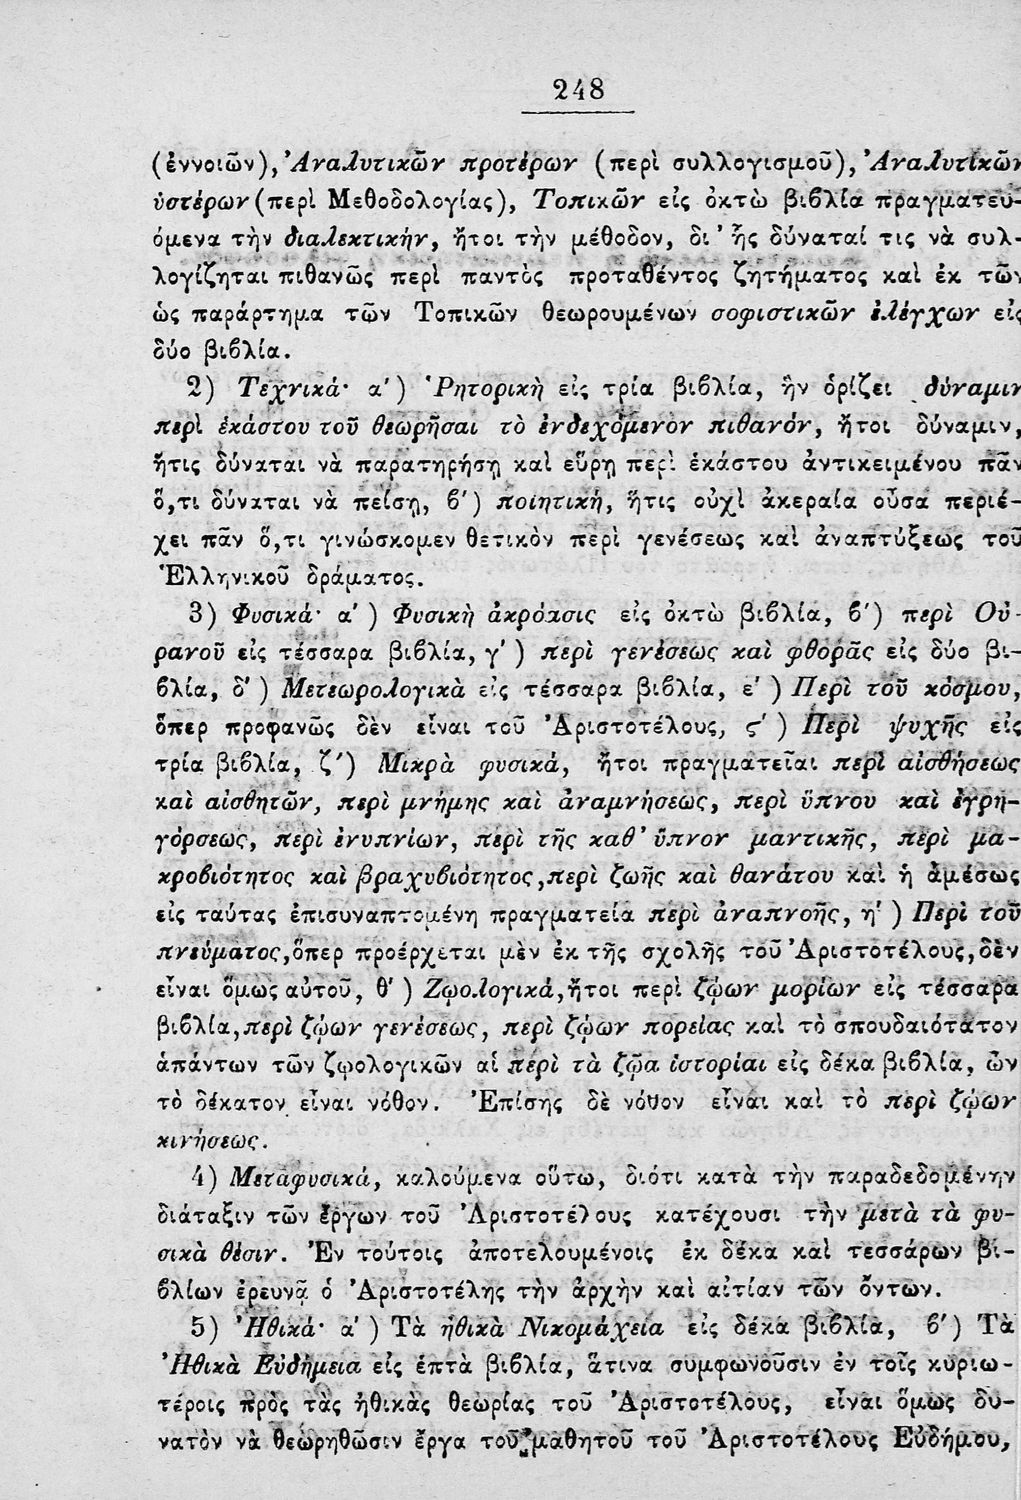 248
(ἐννοιῶν), Ἀναλυτικῶν προτέρων (περὶ συλλογισμοῦ), Ἀναλυτικῶν
ὑστέρων (περὶ Μεθοδολογίας), Τοπικῶν εἰς ὀκτὼ βιβλία πραγματευ-
όμενα τὴν διαλεκτικήν, ἤτοι τὴν μέθοδον, δι' ἧς δύναταί τις νὰ συλ-
λογίζηται πιθανῶς περὶ παντὸς προταθέντος ζητήματος καὶ ἐκ τῶν
ὡς παράρτημα τῶν Τοπικῶν θεωρουμένων σοφιστικῶν ἐλέγχων εἰς
δύο βιβλία.
2) Τεχνικά· α') Ῥητορικὴ εἰς τρία βιβλία, ἣν ὁρίζει δύναμιν
περὶ ἑκάστου τοῦ θεωρῆσαι τὸ ἐνδεχόμενον πιθανόν, ἤτοι δύναμιν,
ἥτις δύναται νὰ παρατηρήσῃ καὶ εὕρῃ περὶ ἑκάστου ἀντικειμένου πᾶν
ὅ,τι δύναται νὰ πείσῃ, β') ποιητικὴ, ἥτις οὐχὶ ἀκεραία οὖσα περιέ-
χει πᾶν ὅ,τι γινώσκομεν θετικὸν περὶ γενέσεως καὶ ἀναπτύξεως τοῦ
Ἑλληνικοῦ δράματος.
3) Φυσικά· α') Φυσικὴ ἀκρόασις εἰς ὀκτὼ βιβλία, β') περὶ Οὐ-
ρανοῦ εἰς τέσσαρα βιβλία, γ') περὶ γενέσεως καὶ φθορᾶς εἰς δύο βι-
βλία, δ') Μετεωρολογικὰ εἰς τέσσαρα βιβλία, ε') Περὶ τοῦ κόσμου,
ὅπερ προφανῶς δὲν εἶναι τοῦ Ἀριστοτέλους, ς') Περὶ ψυχῆς εἰς
τρία βιβλία, ζ') Μικρὰ φυσικά, ἤτοι πραγματεῖαι περὶ αἰσθήσεως
καὶ αἰσθητῶν, περὶ μνήμης καὶ ἀναμνήσεως, περὶ ὕπνου καὶ ἐγρη-
γόρσεως, περὶ ἐνυπνίων, περὶ τῆς καθ' ὕπνον μαντικῆς, περὶ μα-
κροβιότητος καὶ βραχυβιότητος, περὶ ζωῆς καὶ θανάτου καὶ ἡ ἀμέσως
εἰς ταύτας ἐπισυναπτομένη πραγματεία περὶ ἀναπνοῆς, η') Περὶ τοῦ
πνεύματος, ὅπερ προέρχεται μὲν ἐκ τῆς σχολῆς τοῦ Ἀριστοτέλους, δὲν
εἶναι ὅμως αὐτοῦ, θ') Ζῳολογικά, ἤτοι περὶ ζῴων μορίων εἰς τέσσαρα
βιβλία, περὶ ζῴων γενέσεως, περὶ ζῴων πορείας καὶ τὸ σπουδαιότατον
ἁπάντων τῶν ζῳολογικῶν αἱ περὶ τὰ ζῷα ἱστορίαι εἰς δέκα βιβλία, ὧν
τὸ δέκατον εἶναι νόθον. Ἐπίσης δὲ νόθον εἶναι καὶ τὸ περὶ ζῴων
κινήσεως.
4) Μεταφυσικά, καλούμενα οὕτω, διότι κατὰ τὴν παραδεδομένην
διάταξιν τῶν ἔργων τοῦ Ἀριστοτέλους κατέχουσι τὴν μετὰ τὰ φυ-
σικὰ θέσιν. Ἐν τούτοις ἀποτελουμένοις ἐκ δέκα καὶ τεσσάρων βι-
βλίων ἐρευνᾷ ὁ Ἀριστοτέλης τὴν ἀρχὴν καὶ αἰτίαν τῶν ὄντων.
5) Ἠθικά· α') Τὰ ἠθικὰ Νικομάχεια εἰς δέκα βιβλία, β') Τὰ
Ἠθικὰ Εὐδήμεια εἰς ἑπτὰ βιβλία, ἅτινα συμφωνοῦσιν ἐν τοῖς κυριω-
τέροις πρὸς τὰς ἠθικὰς θεωρίας τοῦ Ἀριστοτέλους, εἶναι ὅμως δυ-
νατὸν νὰ θεωρηθῶσιν ἔργα τοῦ μαθητοῦ τοῦ Ἀριστοτέλους Εὐδήμου,